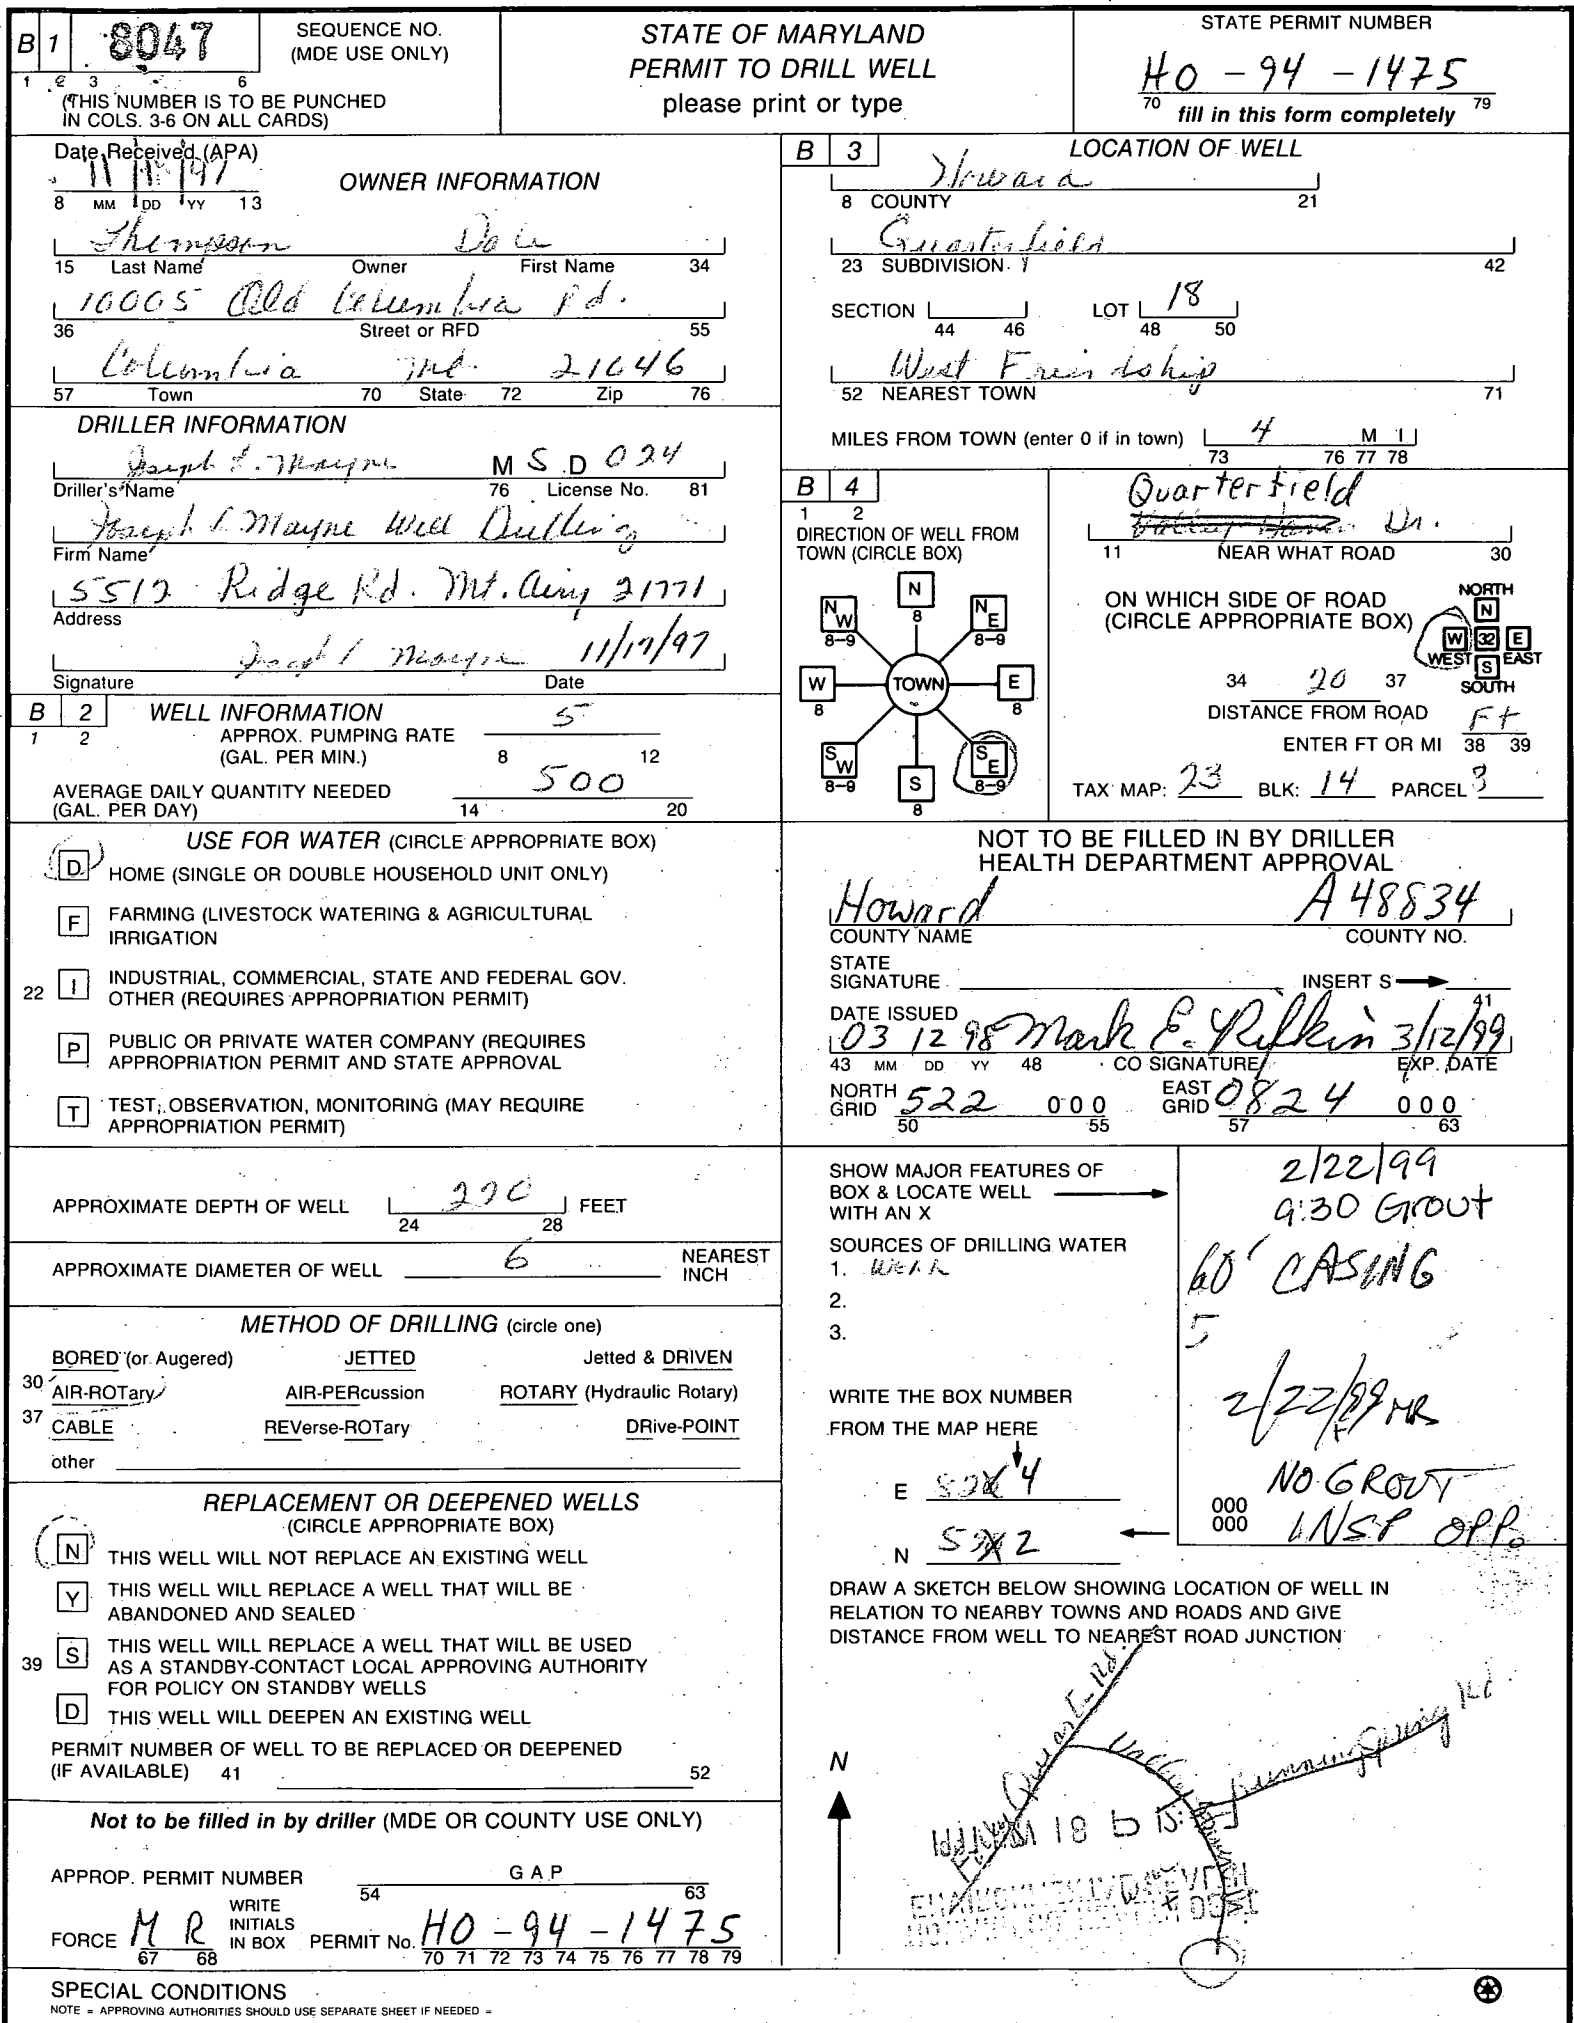 B 1 8047 SEQUENCE NO. (MDE USE ONLY)
1 2 3 6
(THIS NUMBER IS TO BE PUNCHED
IN COLS. 3-6 ON ALL CARDS)
STATE OF MARYLAND
PERMIT TO DRILL WELL
please print or type
STATE PERMIT NUMBER
HO - 94 - 1475
70 fill in this form completely 79
Date Received (APA)
8 MM DD YY 13
OWNER INFORMATION
Thompson Dale
15 Last Name Owner First Name 34
10005 Old Columbia Rd.
36 Street or RFD 55
Columbia Md. 21046
57 Town 70 State 72 Zip 76
DRILLER INFORMATION
Joseph L. Mayne M S D 024
Driller's Name 76 License No. 81
Joseph L Mayne Well Drilling
Firm Name
5512 Ridge Rd. Mt. Airy 21771
Address
Joseph L Mayne 11/17/97
Signature Date
B 2 WELL INFORMATION
1 2 APPROX. PUMPING RATE 5
(GAL. PER MIN.) 8 12
AVERAGE DAILY QUANTITY NEEDED 500
(GAL. PER DAY) 14 20
USE FOR WATER (CIRCLE APPROPRIATE BOX)
D HOME (SINGLE OR DOUBLE HOUSEHOLD UNIT ONLY)
F FARMING (LIVESTOCK WATERING & AGRICULTURAL
IRRIGATION
22 I INDUSTRIAL, COMMERCIAL, STATE AND FEDERAL GOV.
OTHER (REQUIRES APPROPRIATION PERMIT)
P PUBLIC OR PRIVATE WATER COMPANY (REQUIRES
APPROPRIATION PERMIT AND STATE APPROVAL
T TEST, OBSERVATION, MONITORING (MAY REQUIRE
APPROPRIATION PERMIT)
APPROXIMATE DEPTH OF WELL 220 FEET
24 28
APPROXIMATE DIAMETER OF WELL 6 NEAREST
INCH
METHOD OF DRILLING (circle one)
BORED (or Augered) JETTED Jetted & DRIVEN
30 AIR-ROTary AIR-PERcussion ROTARY (Hydraulic Rotary)
37 CABLE REVerse-ROTary DRive-POINT
other
REPLACEMENT OR DEEPENED WELLS
(CIRCLE APPROPRIATE BOX)
N THIS WELL WILL NOT REPLACE AN EXISTING WELL
Y THIS WELL WILL REPLACE A WELL THAT WILL BE
ABANDONED AND SEALED
39 S THIS WELL WILL REPLACE A WELL THAT WILL BE USED
AS A STANDBY-CONTACT LOCAL APPROVING AUTHORITY
FOR POLICY ON STANDBY WELLS
D THIS WELL WILL DEEPEN AN EXISTING WELL
PERMIT NUMBER OF WELL TO BE REPLACED OR DEEPENED
(IF AVAILABLE) 41 52
Not to be filled in by driller (MDE OR COUNTY USE ONLY)
APPROP. PERMIT NUMBER G A P
54 63
FORCE M R WRITE INITIALS IN BOX PERMIT No. HO - 94 - 1475
67 68 70 71 72 73 74 75 76 77 78 79
SPECIAL CONDITIONS
NOTE = APPROVING AUTHORITIES SHOULD USE SEPARATE SHEET IF NEEDED =
B 3 LOCATION OF WELL
Howard
8 COUNTY 21
Quarterfield
23 SUBDIVISION 42
SECTION LOT 18
44 46 48 50
West Freindship
52 NEAREST TOWN 71
MILES FROM TOWN (enter 0 if in town) 4 M I
73 76 77 78
B 4
1 2
DIRECTION OF WELL FROM
TOWN (CIRCLE BOX)
N
8
NW NE
8-9 8-9
W TOWN E
8 8
SW SE
8-9 8-9
S
8
Quarterfield
Dr.
11 NEAR WHAT ROAD 30
ON WHICH SIDE OF ROAD
(CIRCLE APPROPRIATE BOX)
NORTH
N
W 32 E
WEST S EAST
SOUTH
34 20 37
DISTANCE FROM ROAD Ft
ENTER FT OR MI 38 39
TAX MAP: 23 BLK: 14 PARCEL 3
NOT TO BE FILLED IN BY DRILLER
HEALTH DEPARTMENT APPROVAL
Howard A 48834
COUNTY NAME COUNTY NO.
STATE
SIGNATURE INSERT S
41
DATE ISSUED
03 12 98 Mark E. Rifkin 3/12/99
43 MM DD YY 48 CO SIGNATURE EXP. DATE
NORTH GRID 522 000 EAST GRID 0824 000
50 55 57 63
SHOW MAJOR FEATURES OF
BOX & LOCATE WELL
WITH AN X
SOURCES OF DRILLING WATER
1. WELL
2.
3.
WRITE THE BOX NUMBER
FROM THE MAP HERE
E 82X 4
N 5 X 2
2/22/99
9:30 Grout
60' CASING
5
2/22/99 MR
NO GROUT
000
000 INSP OPP.
DRAW A SKETCH BELOW SHOWING LOCATION OF WELL IN
RELATION TO NEARBY TOWNS AND ROADS AND GIVE
DISTANCE FROM WELL TO NEAREST ROAD JUNCTION
N
Running Spring Rd